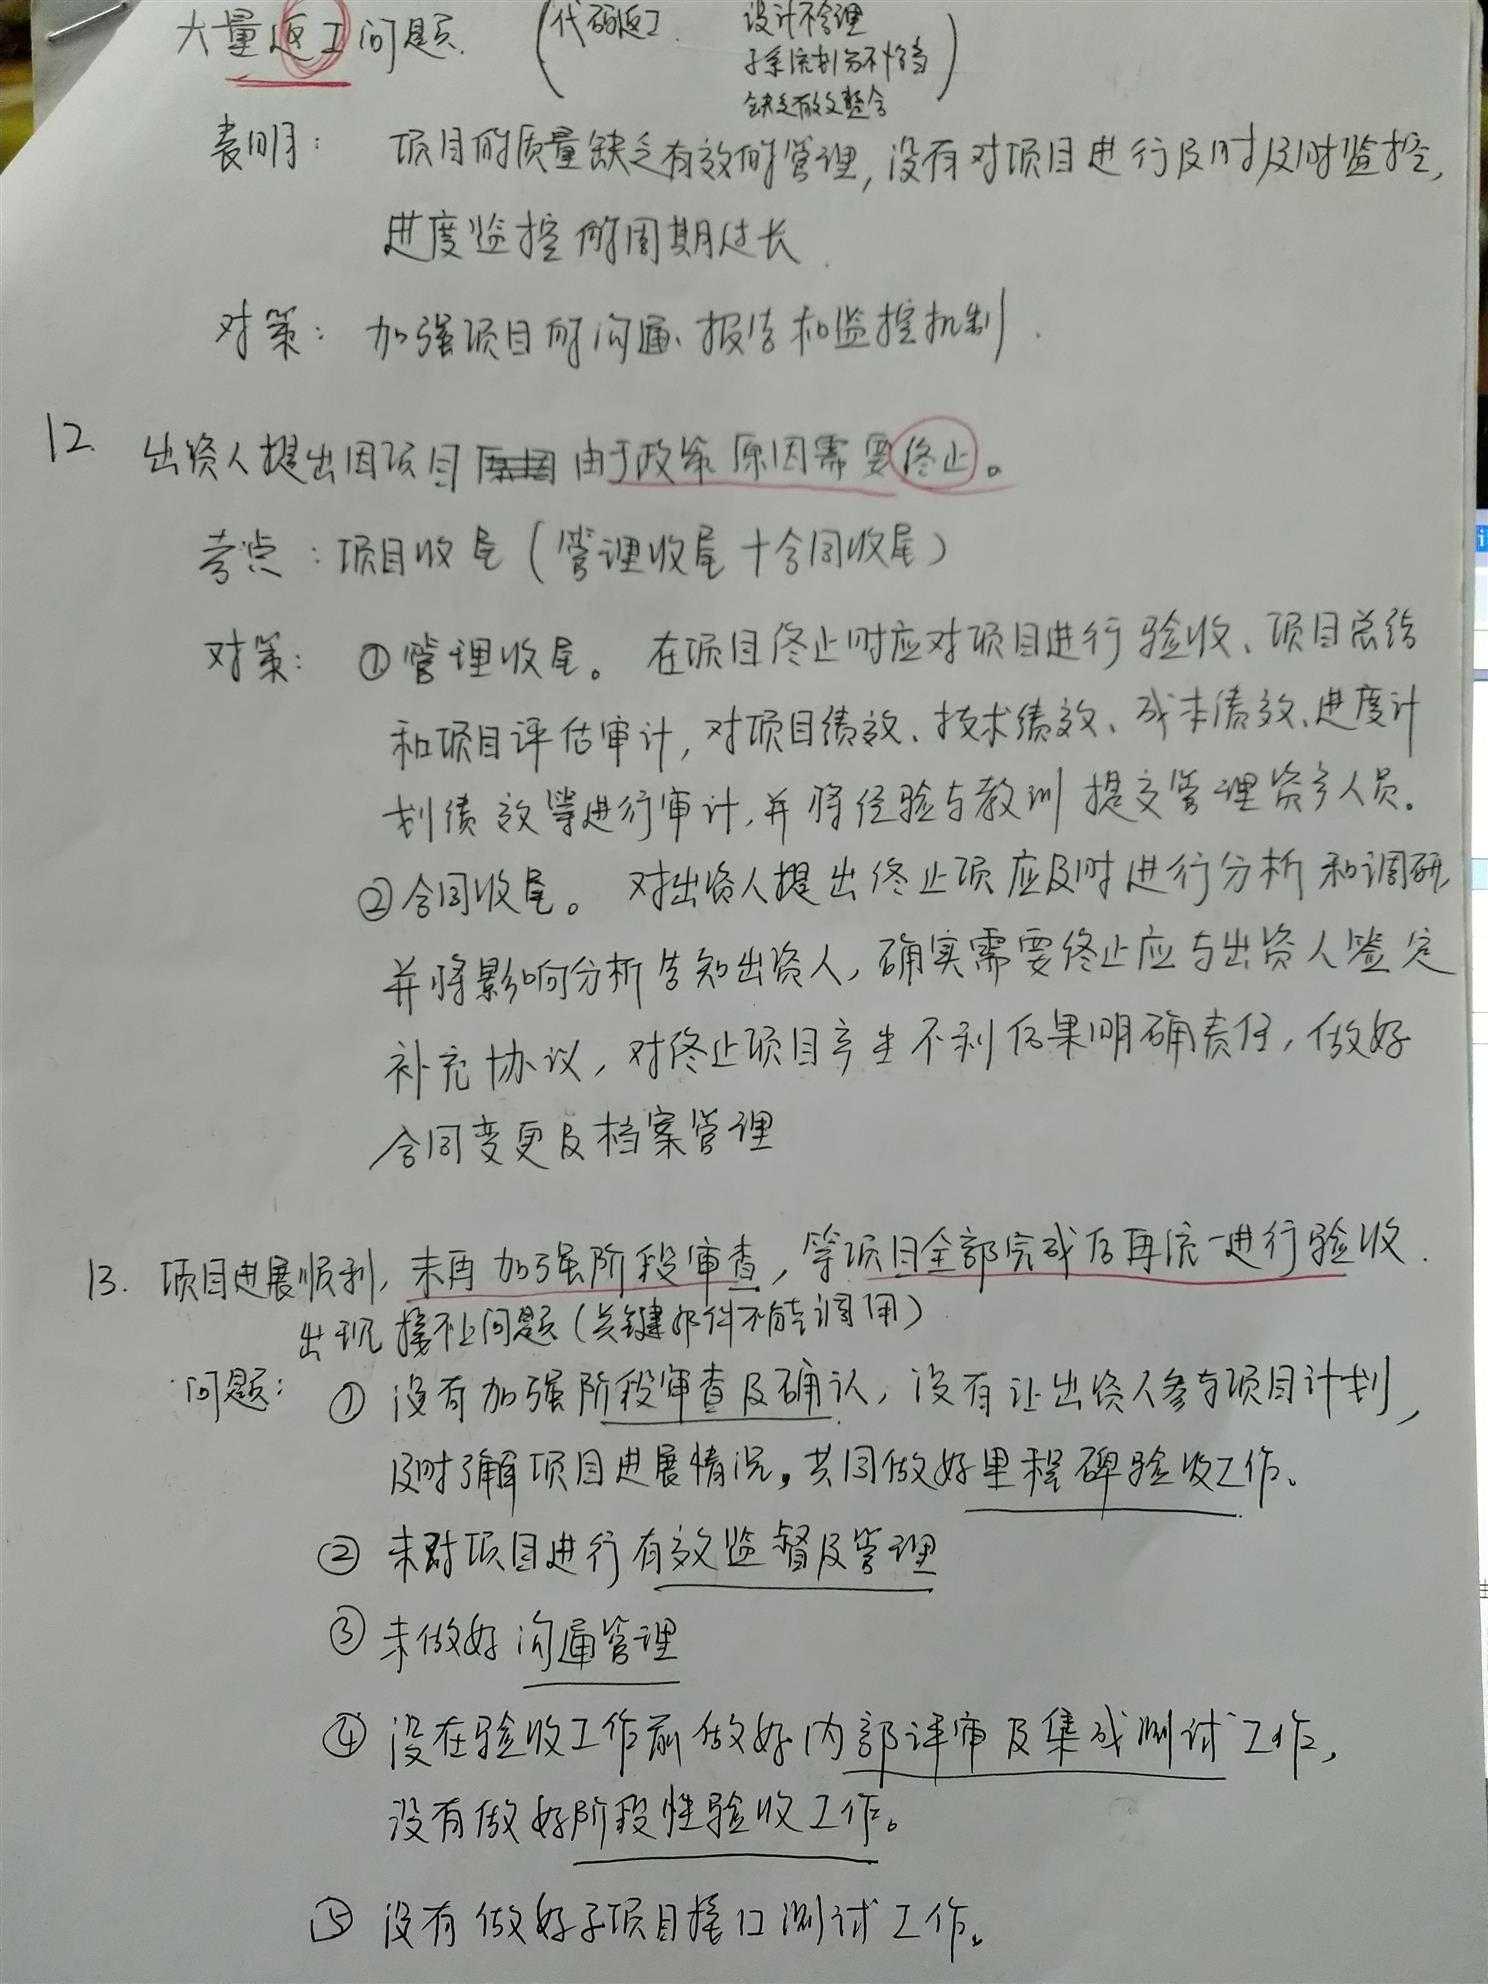 大量返工问题. (代码返工. 设计不合理
子系统划分不恰当
缺乏有效整合)
表明: 项目的质量缺乏有效的管理, 没有对项目进行及时及时监控,
进度监控的周期过长.
对策: 加强项目的沟通、报告和监控机制.
12. 出资人提出因项目 由于政策原因需要终止。
考点: 项目收尾 (管理收尾 + 合同收尾)
对策: ①管理收尾。 在项目终止时应对项目进行验收、项目总结
和项目评估审计, 对项目绩效、技术绩效、成本绩效、进度计
划绩效等进行审计, 并将经验与教训提交管理资产人员。
②合同收尾。 对出资人提出终止项应及时进行分析和调研
并将影响分析告知出资人, 确实需要终止应与出资人签定
补充协议, 对终止项目产生不利后果明确责任, 做好
合同变更及档案管理
13. 项目进展顺利, 未再加强阶段审查, 等项目全部完成后再统一进行验收.
出现接不上问题 (关键部件不能调用)
问题: ① 没有加强阶段审查及确认, 没有让出资人参与项目计划,
及时了解项目进展情况。共同做好里程碑验收工作。
② 未对项目进行有效监督及管理
③ 未做好沟通管理
④ 没在验收工作前做好内部评审及集成测试工作,
没有做好阶段性验收工作。
⑤ 没有做好子项目接口测试工作。